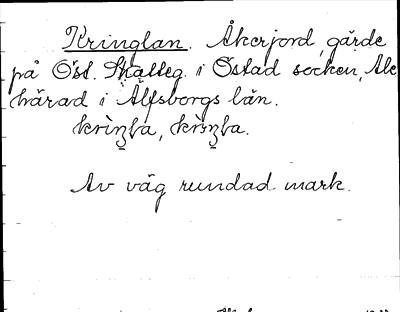 Kringlan. Åkerjord, gärde
på Öst. Skalleg. i Östad socken, Ale
härad i Älfsborgs län.
Av väg rundad mark.